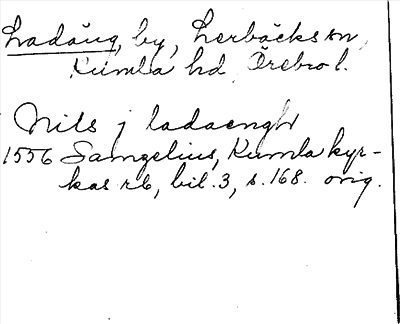 Ladäng, by, Lerbäcks sn,
Kumla hd, Örebro l.
Nils j ladaengh
1556 Samzelius, Kumla kyr-
kas rb, bil. 3, s. 168. orig.